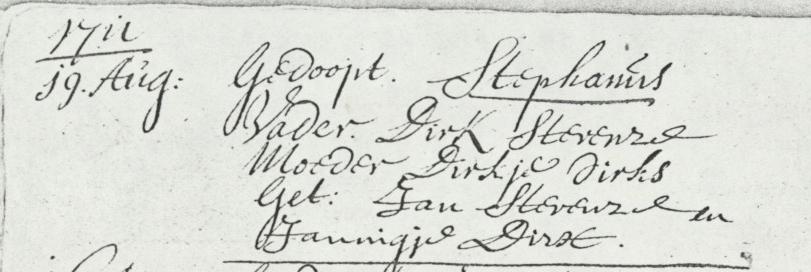 1711
19. Aug: Gedoopt. Stephanús
Vader. Dirk Stevenze
Moeder Dirkje Dirks
Get: Jan Stevenze en
Janningje Dirx.